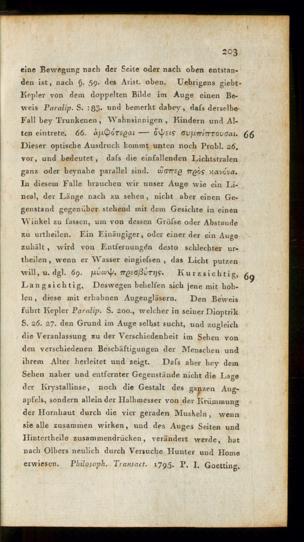 203
eine Bewegung nach der Seite oder nach oben entstan-
den ist, nach §. 59. des Arist. oben. Uebrigens giebt
Kepler von dem doppelten Bilde im Auge einen Be-
weis Paralip. S. 183. und bemerkt dabey, daſs derselbe
Fall bey Trunkenen, Wahnsinnigen, Kindern und Al-
ten eintrete. 66. ἀμφότεραι — ὄψεις συμπίπτουσαι. 66
Dieser optische Ausdruck kommt unten noch Probl. 26.
vor, und bedeutet, daſs die einfallenden Lichtstralen
ganz oder beynahe parallel sind. ὥσπερ πρὸς κανόνα.
In diesem Falle brauchen wir unser Auge wie ein Li-
neal, der Länge nach zu sehen, nicht aber einen Ge-
genstand gegenüber stehend mit dem Gesichte in einen
Winkel zu fassen, um von dessen Gröſse oder Abstande
zu urtheilen. Ein Einäugiger, oder einer der ein Auge
zuhält, wird von Entfernungen desto schlechter ur-
theilen, wenn er Wasser eingieſsen, das Licht putzen
will, u. dgl. 69. μύωψ, πρεσβύτης. Kurzsichtig, 69
Langsichtig. Deswegen behelfen sich jene mit hoh-
len, diese mit erhabnen Augengläsern. Den Beweis
führt Kepler Paralip. S. 200., welcher in seiner Dioptrik
S. 26. 27. den Grund im Auge selbst sucht, und zugleich
die Veranlassung zu der Verschiedenheit im Sehen von
den verschiedenen Beschäftigungen der Menschen und
ihrem Alter herleitet und zeigt. Daſs aber bey dem
Sehen naher und entfernter Gegenstände nicht die Lage
der Krystallinse, noch die Gestalt des ganzen Aug-
apfels, sondern allein der Halbmesser von der Krümmung
der Hornhaut durch die vier geraden Muskeln, wenn
sie alle zusammen wirken, und des Auges Seiten und
Hintertheile zusammendrücken, verändert werde, hat
nach Olbers neulich durch Versuche Hunter und Home
erwiesen. Philosoph. Transact. 1795. P. I. Goetting.